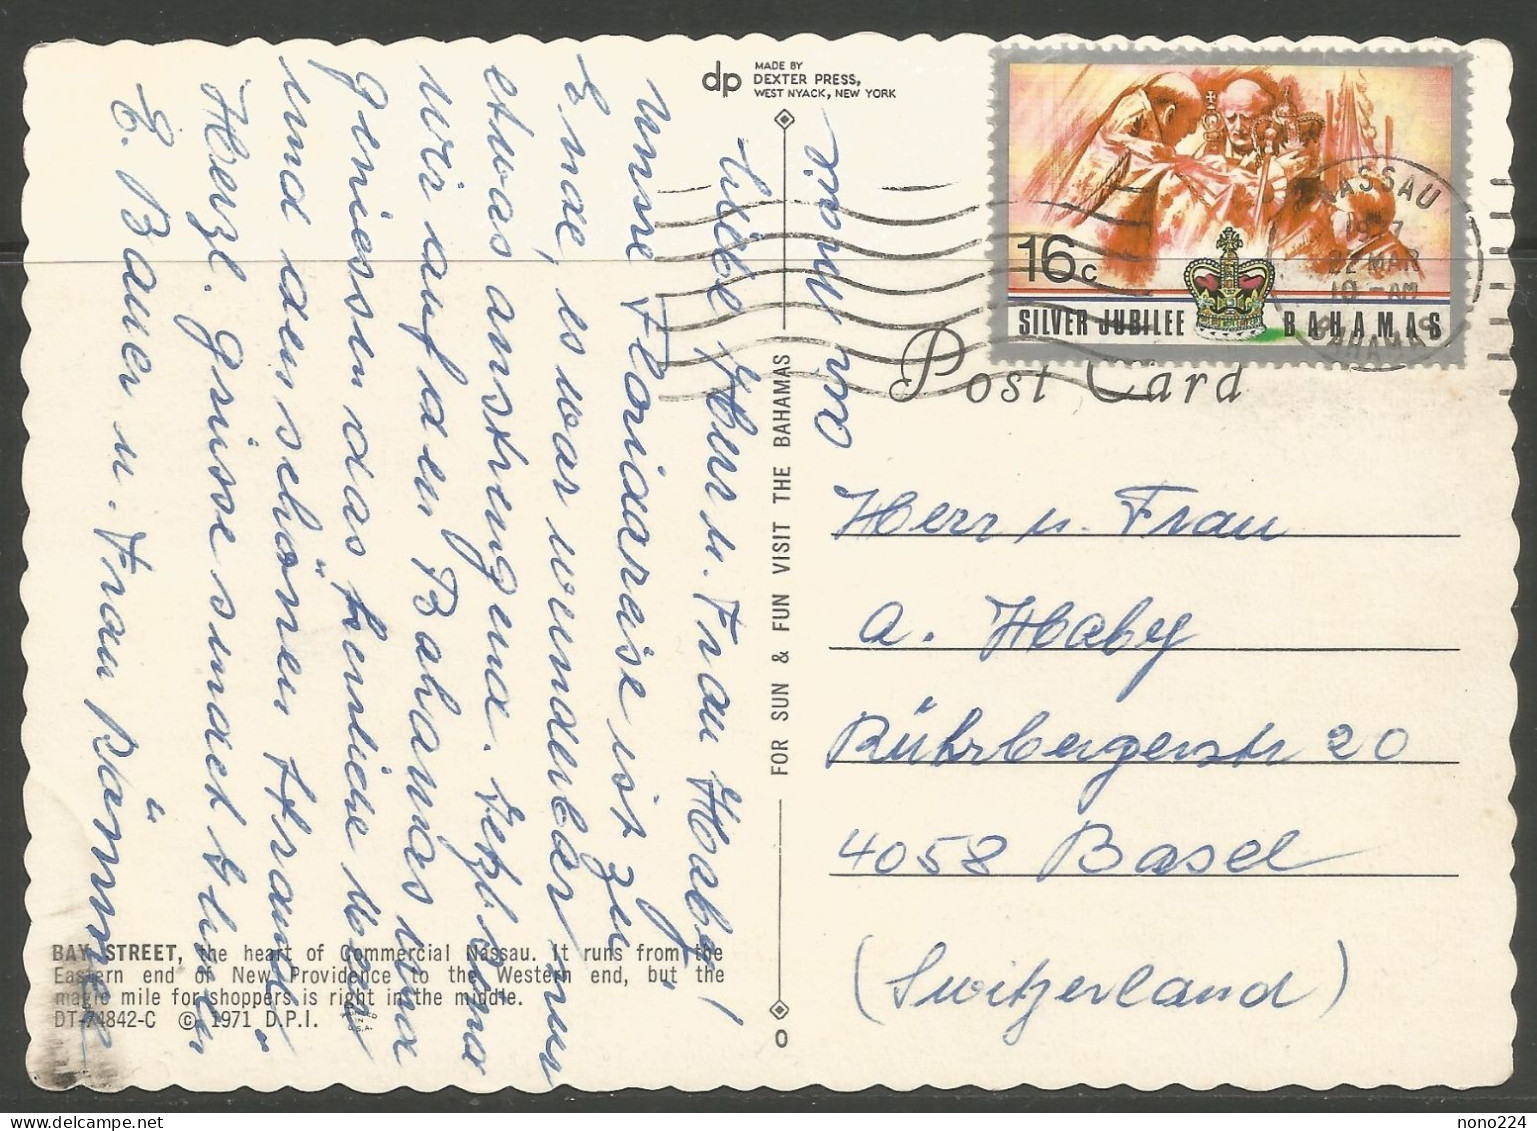 dp MADE BY
DEXTER PRESS,
WEST NYACK, NEW YORK
16c
SILVER JUBILEE BAHAMAS
NASSAU
1977
22 MAR
10 - AM
BAHAMAS
Post Card
FOR SUN & FUN VISIT THE BAHAMAS
0
Liebe Herr u. Frau Haby!
Unsere Floridareise ist zu
Ende, es war wunderbar nur
etwas anstrengend. Jetzt sind
wir auf den Bahamas und
geniessen das herrliche Meer
und den schönen Strand.
Herzl. Grüsse sendet Ihnen
E. Bauer u. Frau
Herr u. Frau
A. Haby
Rührbergerstr 20
4058 Basel
(Switzerland)
BAY STREET, the heart of Commercial Nassau. It runs from the
Eastern end of New Providence to the Western end, but the
magic mile for shoppers is right in the middle.
DT-74842-C © 1971 D.P.I.
nono224